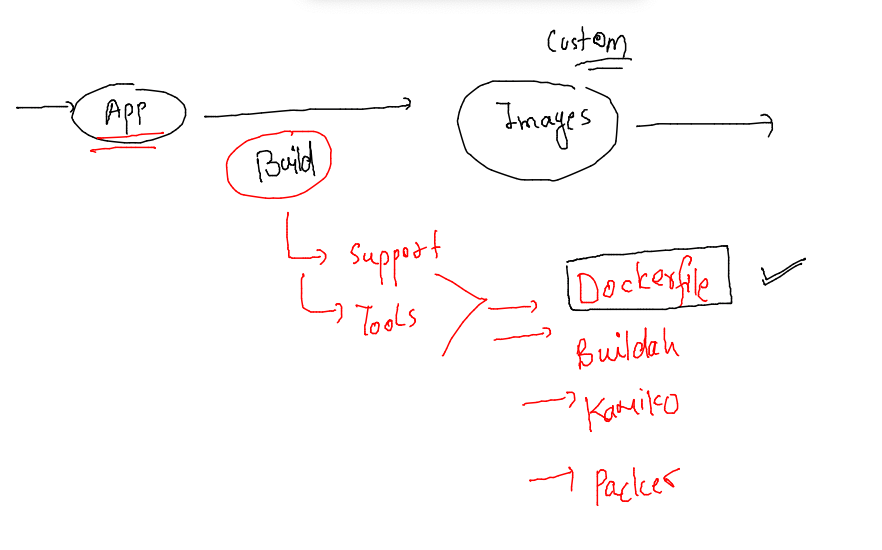 Custom
App
Images
Build
Support
Tools
Dockerfile
Buildah
Kaniko
Packer